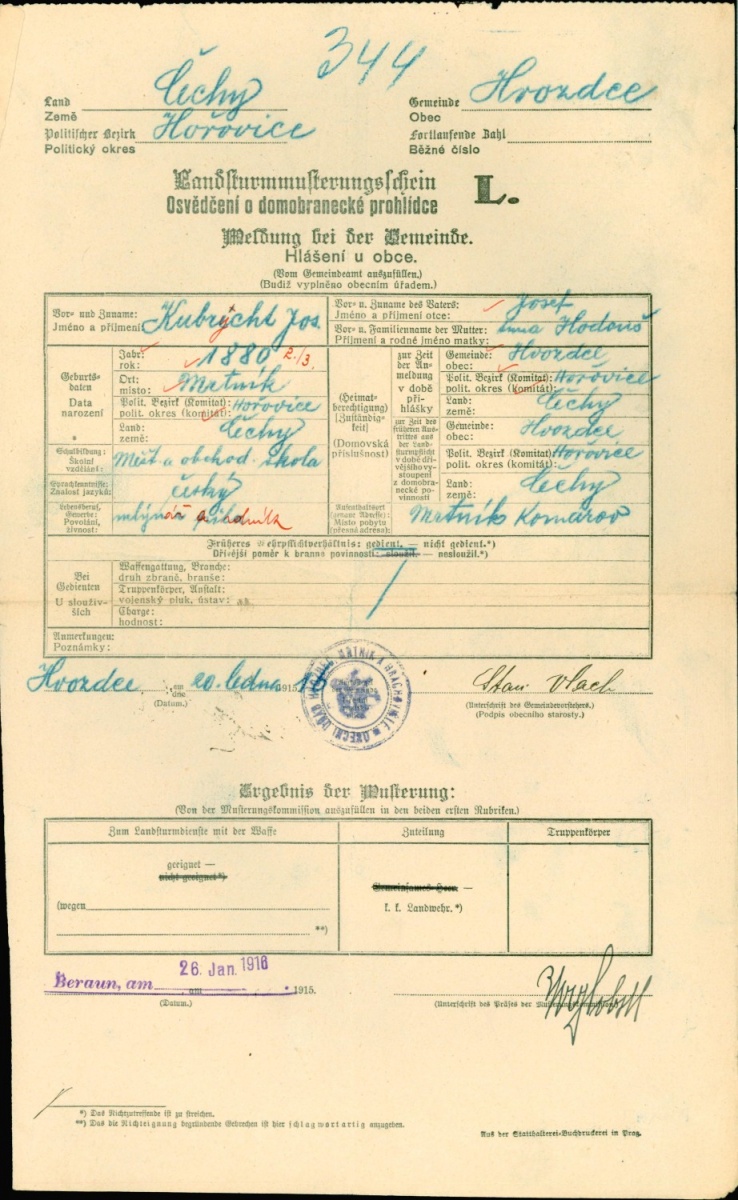 344
Land Čechy
Země
Gemeinde Hvozdce
Obec
Politischer Bezirk Hořovice
Politický okres
Fortlaufende Zahl
Běžné číslo
Landsturmmusterungsschein
Osvědčení o domobranecké prohlídce
L.
Meldung bei der Gemeinde.
Hlášení u obce.
(Vom Gemeindeamt auszufüllen.)
(Budiž vyplněno obecním úřadem.)
Vor- und Zuname:
Jméno a příjmení
Kubrycht Jos.
Vor- u. Zuname des Vaters:
Jméno a příjmení otce:
Josef
Vor- u. Familienname der Mutter:
Příjmení a rodné jméno matky:
Anna Hodouš
Geburts-
daten
Data
narození
Jahr:
rok:
1880 2./3.
Ort:
místo:
Mrtník
Polit. Bezirk (Komitat):
polit. okres (komitát):
Hořovice
Land:
země:
Čechy
(Heimat-
berechtigung)
[Zuständig-
keit]
(Domovská
příslušnost)
zur Zeit
der An-
meldung
v době
při-
hlášky
Gemeinde:
obec:
Hvozdce
Polit. Bezirk (Komitat):
polit. okres (komitát):
Hořovice
Land:
země:
Čechy
zur Zeit des
früheren Aus-
trittes aus
der Land-
sturmpflicht
v době dří-
vějšího vy-
stoupení
z domobrane-
cké po-
vinnosti
Gemeinde:
obec:
Hvozdce
Polit. Bezirk (Komitat):
polit. okres (komitát):
Hořovice
Land:
země:
Čechy
Schulbildung:
Školní
vzdělání:
Měšt. a obchod. škola
Sprachkenntnisse:
Znalost jazyků:
český
Lebensberuf,
Gewerbe:
Povolání,
živnost:
mlynář a
Aufenthaltsort
(genaue Adresse):
Místo pobytu
(přesná adresa):
Mrtník Komárov
Früheres Wehrpflichtverhältnis: gedient. — nicht gedient.*)
Dřívější poměr k branné povinnosti: sloužil. — nesloužil.*)
Bei
Gedienten
U slouživ-
ších
Waffengattung, Branche:
druh zbraně, branše:
Truppenkörper, Anstalt:
vojenský pluk, ústav:
Charge:
hodnost:
Anmerkungen:
Poznámky:
Hvozdce, am
dne 20. ledna 1915 16
(Datum.)
Stan Vlach
(Unterschrift des Gemeindevorstehers.)
(Podpis obecního starosty.)
Ergebnis der Musterung:
(Von der Musterungskommission auszufüllen in den beiden ersten Rubriken.)
Zum Landsturmdienste mit der Waffe
Zuteilung
Truppenkörper
geeignet —
nicht geeignet*)
(wegen
**)
Gemeinsames Heer. —
k. k. Landwehr.*)
Beraun, am 26. Jan. 1916
am 1915.
(Datum.)
(Unterschrift des Präses der Musterungskommission)
*) Das Nichtzutreffende ist zu streichen.
**) Das die Nichteignung begründende Gebrechen ist hier schlagwortartig anzugeben.
Aus der Statthalterei-Buchdruckerei in Prag.